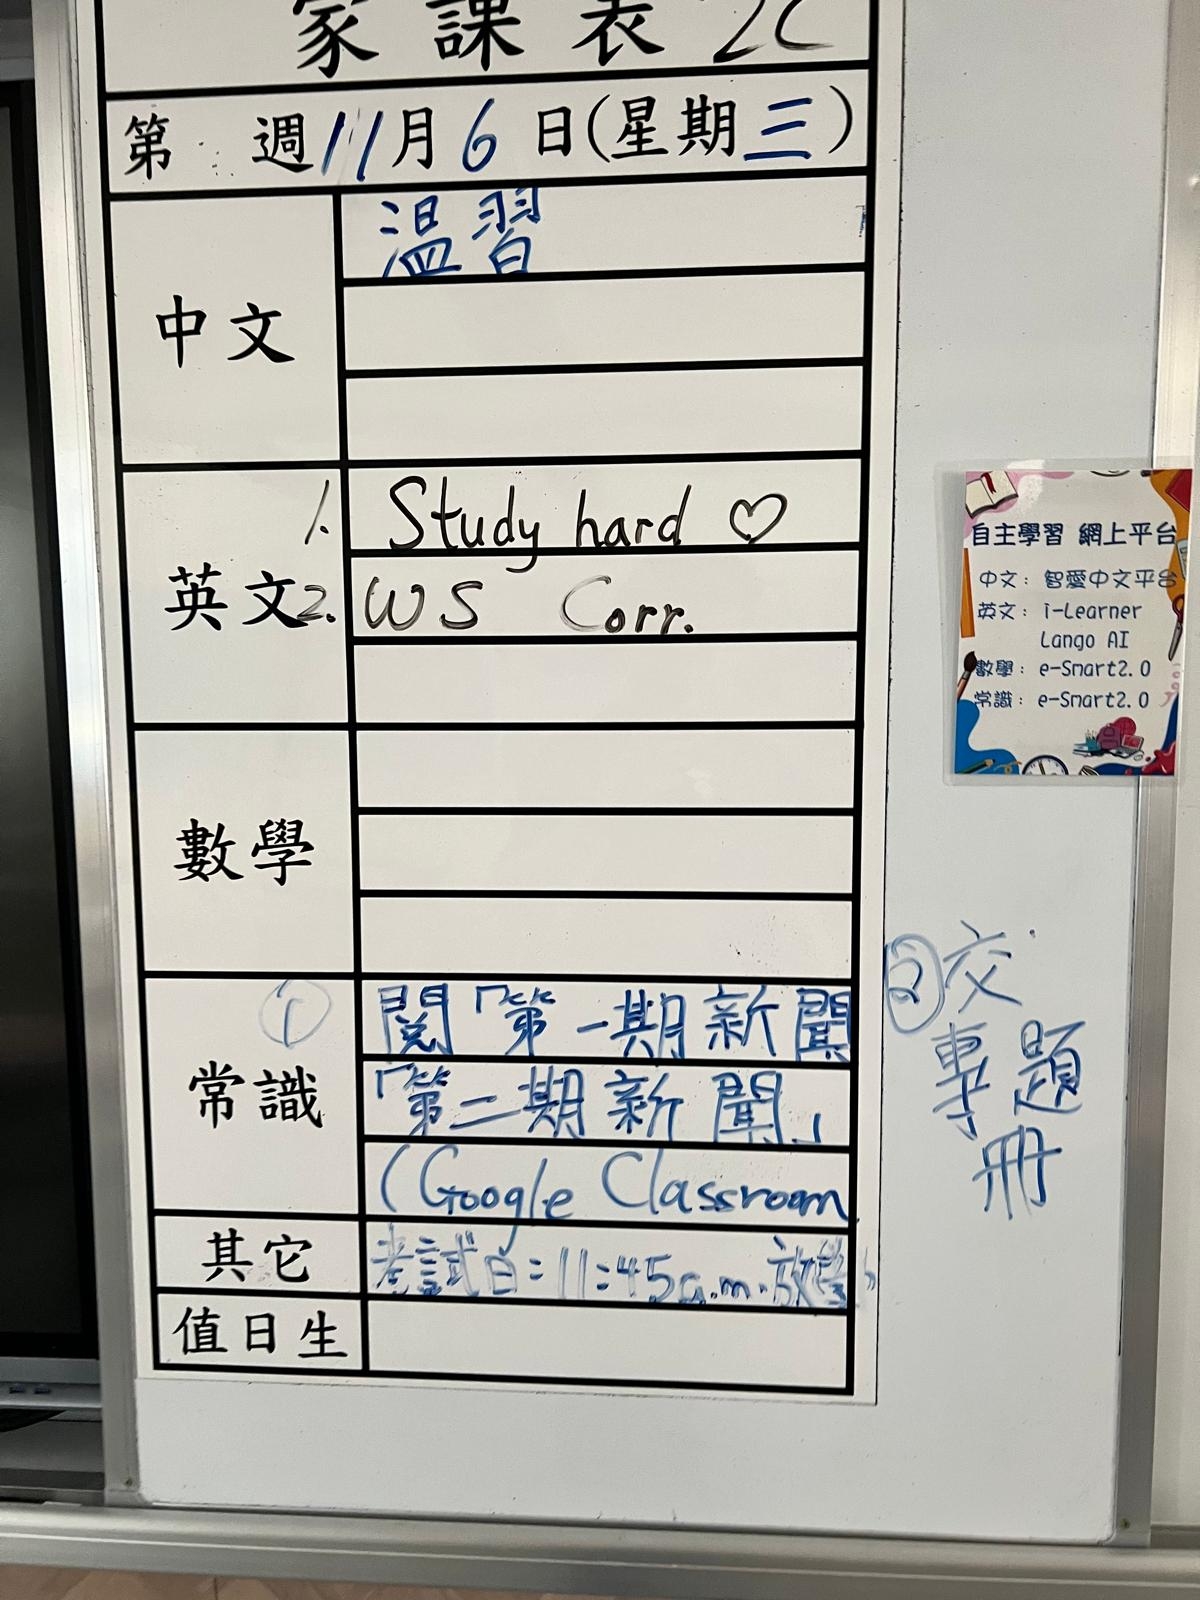 家課表 2C
第 週 11月6日(星期三)
中文
溫習
英文
1. Study hard ♡
2. WS Corr.
數學
常識
① 閱「第一期新聞
「第二期新聞」
(Google Classroom
② 交
專題
冊
其它
考試日:11:45a.m.放學
值日生
自主學習 網上平台
中文: 智愛中文平台
英文: i-Learner
Lango AI
數學: e-Smart2.0
常識: e-Smart2.0